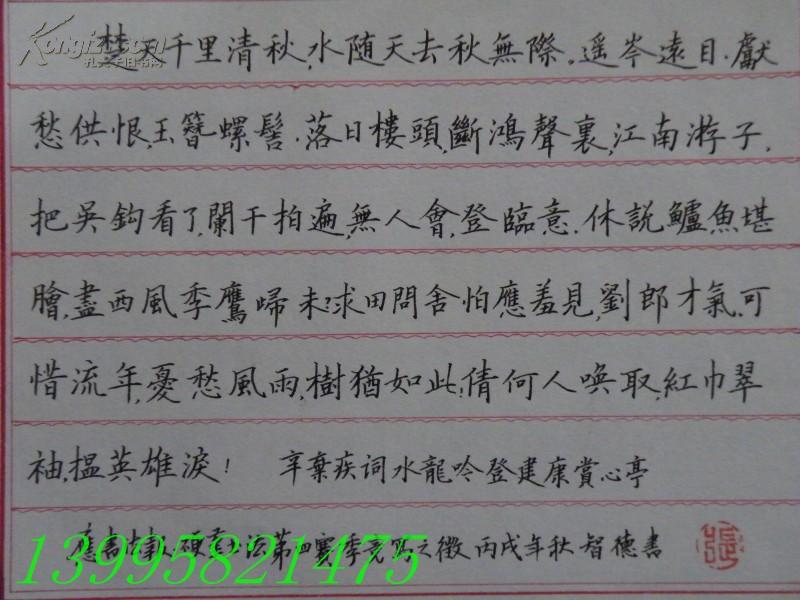 Kongfz.com
孔夫子旧书网
楚天千里清秋,水随天去秋無際。遥岑遠目.獻
愁供恨,玉簪螺髻.落日樓頭,斷鴻聲裏,江南游子.
把吴鈎看了,闌干拍遍,無人會,登臨意.休説鱸魚堪
膾,盡西風季鷹歸未?求田問舍怕應羞見,劉郎才氣.可
惜流年,憂愁風雨,樹猶如此!倩何人唤取,紅巾翠
袖,揾英雄淚! 辛棄疾词水龍吟登建康賞心亭
應書法 硬笔书法第四賽季竞写之徵丙戌年秋智德書
張
13995821475